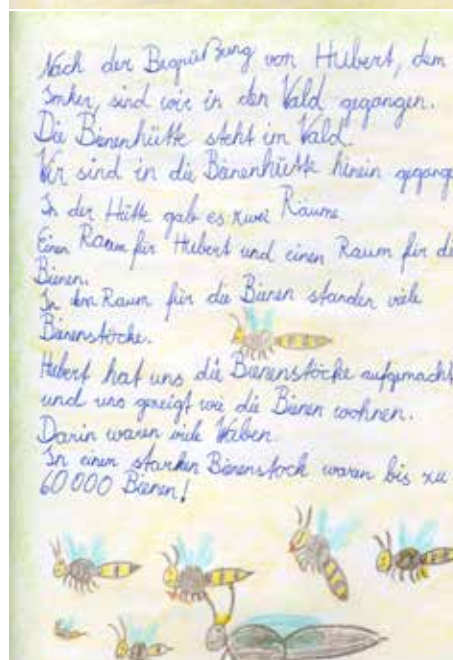 Nach der Begrüßung von Hubert, dem
Imker, sind wir in den Wald gegangen.
Die Bienenhütte steht im Wald.
Wir sind in die Bienenhütte hinein gegange
In der Hütte gab es zwei Räume.
Einen Raum für Hubert und einen Raum für di
Bienen.
In dem Raum für die Bienen standen viele
Bienenstöcke.
Hubert hat uns die Bienenstöcke aufgemacht
und uns gezeigt wie die Bienen wohnen.
Darin waren viele Waben.
In einem starken Bienenstock waren bis zu
60 000 Bienen!